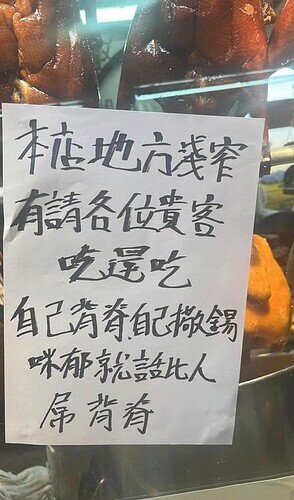 本店地方淺窄
有請各位貴客
吃還吃
自己背脊自己撒錫
咪郁就話比人
屌背脊